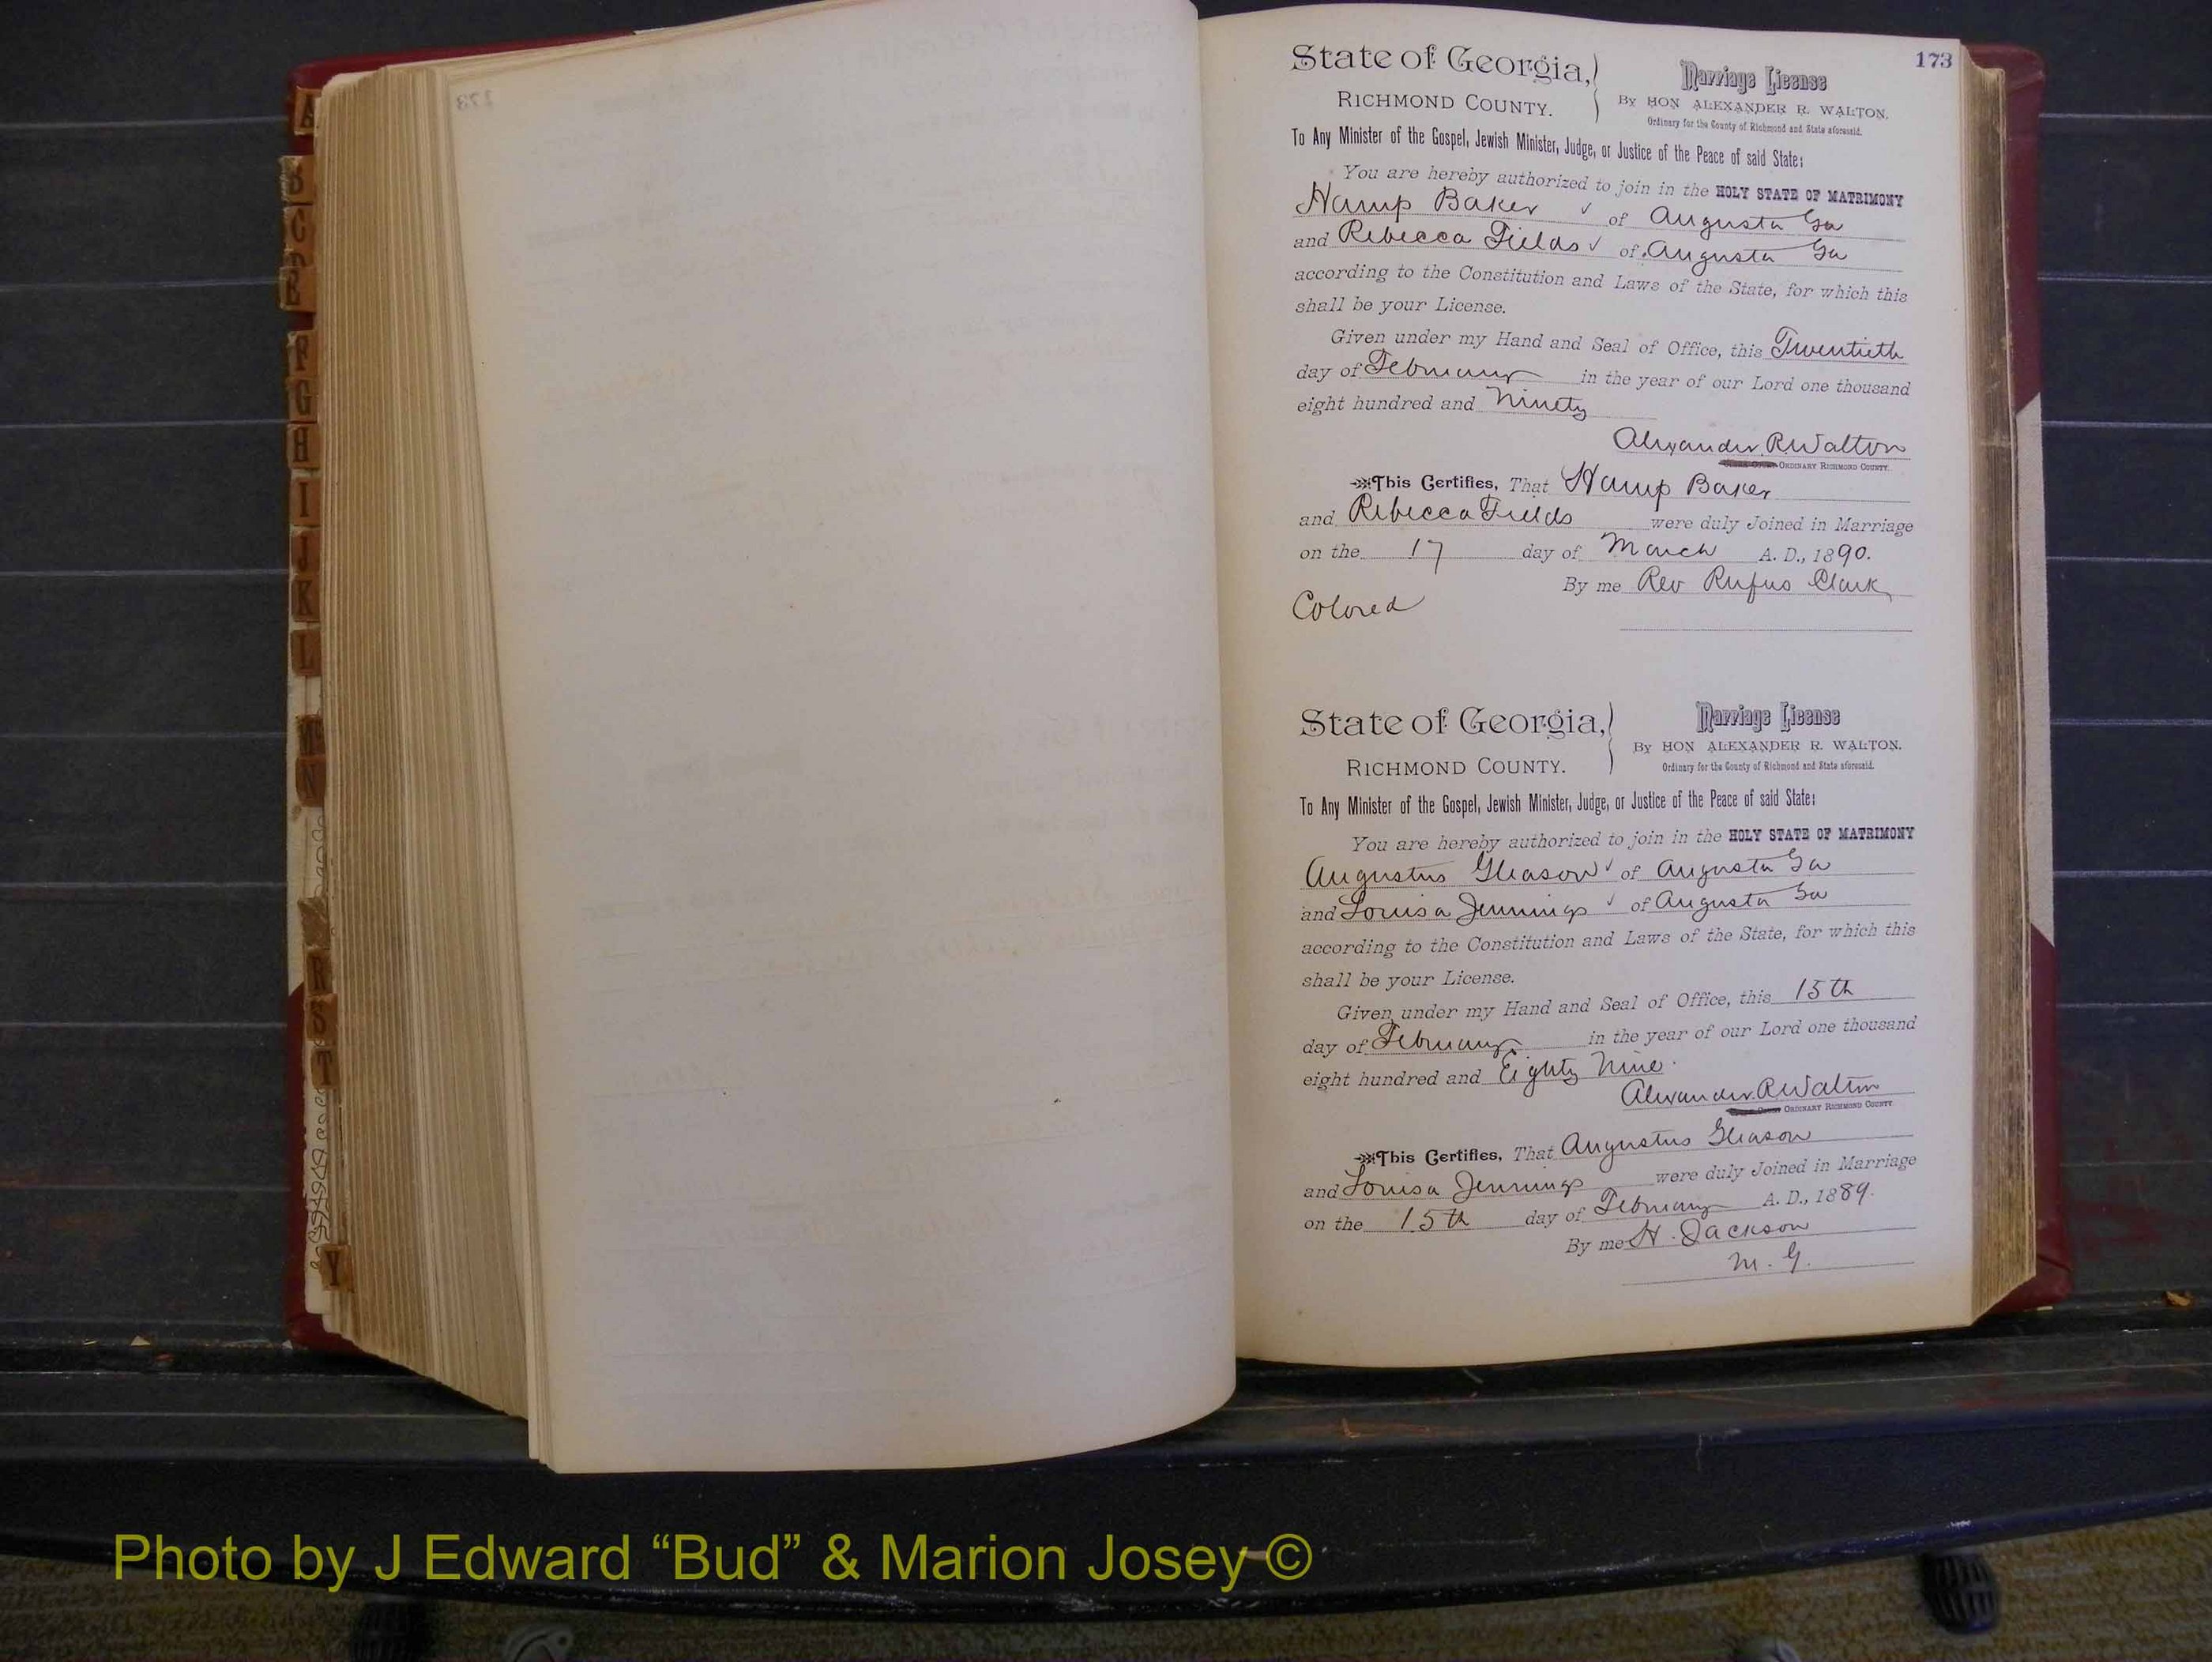 A
B
C
E
F
G
H
I
J
K
L
Mc
N
R
S
T
Y
173
State of Georgia,
RICHMOND COUNTY.
Marriage License
By HON ALEXANDER R. WALTON,
Ordinary for the County of Richmond and State aforesaid.
To Any Minister of the Gospel, Jewish Minister, Judge, or Justice of the Peace of said State:
You are hereby authorized to join in the HOLY STATE OF MATRIMONY
Hamp Baker ✓ of Augusta Ga
and Rebecca Fields ✓ of Augusta Ga
according to the Constitution and Laws of the State, for which this
shall be your License.
Given under my Hand and Seal of Office, this Twentieth
day of February in the year of our Lord one thousand
eight hundred and Ninety
Alexander R Walton
ORDINARY RICHMOND COUNTY.
This Certifies, That Hamp Baker
and Rebecca Fields were duly Joined in Marriage
on the 17 day of March A. D., 1890.
By me Rev Rufus Clark
Colored
State of Georgia,
RICHMOND COUNTY.
Marriage License
By HON ALEXANDER R. WALTON.
Ordinary for the County of Richmond and State aforesaid.
To Any Minister of the Gospel, Jewish Minister, Judge, or Justice of the Peace of said State:
You are hereby authorized to join in the HOLY STATE OF MATRIMONY
Augustus Gleason ✓ of Augusta Ga
and Louisa Jennings ✓ of Augusta Ga
according to the Constitution and Laws of the State, for which this
shall be your License.
Given under my Hand and Seal of Office, this 15th
day of February in the year of our Lord one thousand
eight hundred and Eighty Nine.
Alexander R Walton
ORDINARY RICHMOND COUNTY
This Certifies, That Augustus Gleason
and Louisa Jennings were duly Joined in Marriage
on the 15th day of February A. D., 1889.
By me H. Jackson
M. G.
Photo by J Edward “Bud” & Marion Josey ©